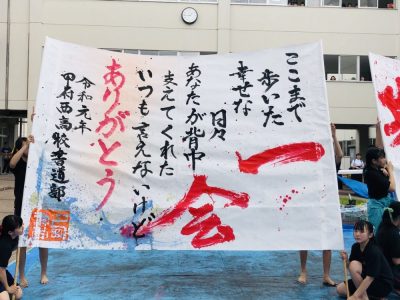 ここまで
歩いた
幸せな
日々
あなたが背中
支えてくれた
いつも言えないけど
ありがとう
一会
令和元年
甲府西高校書道部